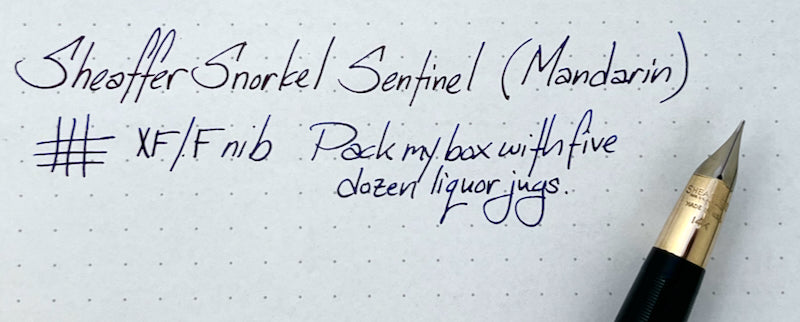 Sheaffer Snorkel Sentinel (Mandarin)
XF/F nib Pack my box with five
dozen liquor jugs.
SHEAFFER'S
MADE IN
14K